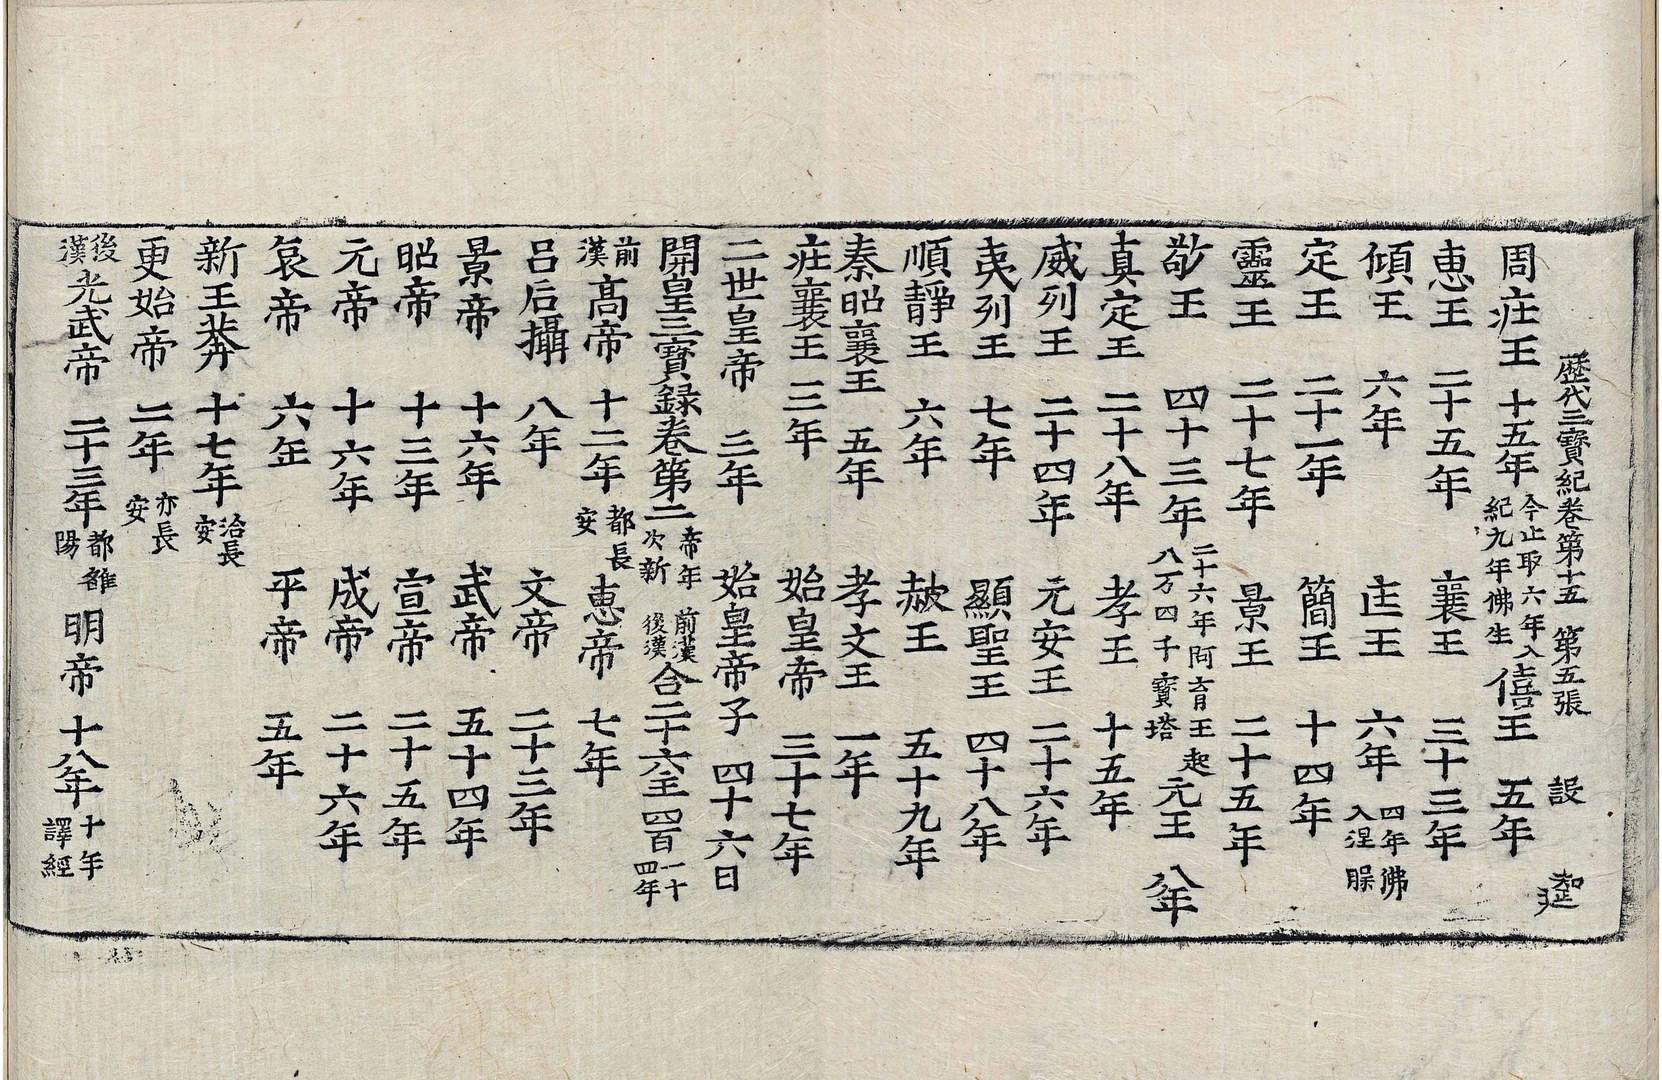 歷代三寶紀卷第十五 第五張 設
周庄王 十五年 今止取六年入紀九年佛生 僖王 五年
恵王 二十五年 襄王 三十三年
傾王 六年 匡王 六年 四年佛入涅䐗
定王 二十一年 簡王 十四年
靈王 二十七年 景王 二十五年
敬王 四十三年 二十六年阿育王起八万四千寶塔 元王 八年
真定王 二十八年 孝王 十五年
威列王 二十四年 元安王 二十六年
夷列王 七年 顯聖王 四十八年
順靜王 六年 赧王 五十九年
秦昭襄王 五年 孝文王 一年
庄襄王 三年 始皇帝 三十七年
二世皇帝 三年 始皇帝子 四十六日
開皇三寶録卷第二 帝年次 前漢新後漢 合二十六主 四百一十四年
前漢 髙帝 十二年 都長安 恵帝 七年
吕后攝 八年 文帝 二十三年
景帝 十六年 武帝 五十四年
昭帝 十三年 宣帝 二十五年
元帝 十六年 成帝 二十六年
哀帝 六年 平帝 五年
新王莽 十七年 治長安
更始帝 二年 亦長安
後漢 光武帝 三十三年 都雒陽 明帝 十八年 十年譯經